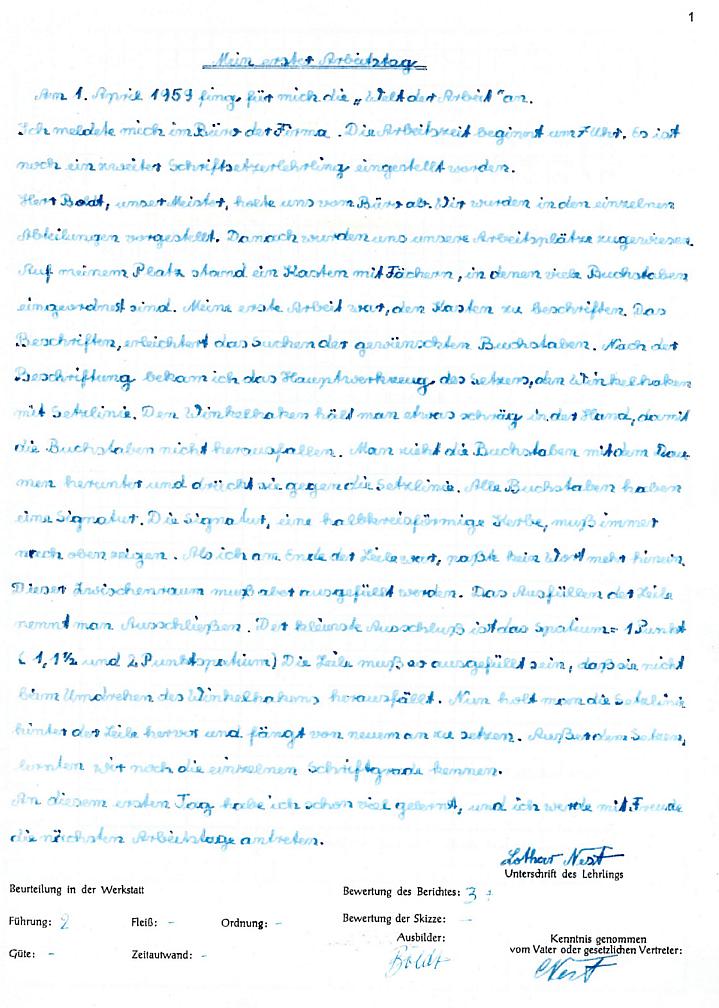 1
Mein erster Arbeitstag
Am 1. April 1959 fing für mich die „Welt der Arbeit" an.
Ich meldete mich im Büro der Firma. Die Arbeitszeit beginnt um 7 Uhr. Es ist
noch ein zweiter Schriftsetzerlehrling eingestellt worden.
Herr Boldt, unser Meister, holte uns vom Büro ab. Wir wurden in den einzelnen
Abteilungen vorgestellt. Danach wurden uns unsere Arbeitsplätze zugewiesen.
Auf meinem Platz stand ein Kasten mit Fächern, in denen viele Buchstaben
eingeordnet sind. Meine erste Arbeit war, den Kasten zu beschriften. Das
Beschriften, erleichtert das Suchen der gewünschten Buchstaben. Nach der
Beschriftung bekam ich das Hauptwerkzeug des Setzers, den Winkelhaken
mit Setzlinie. Den Winkelhaken hält man etwas schräg in der Hand, damit
die Buchstaben nicht herausfallen. Man zieht die Buchstaben mit dem Dau-
men herunter und drückt sie gegen die Setzlinie. Alle Buchstaben haben
eine Signatur. Die Signatur, eine halbkreisförmige Kerbe, muß immer
nach oben zeigen. Als ich am Ende der Zeile war, paßte kein Wort mehr hinein.
Dieser Zwischenraum muß aber ausgefüllt werden. Das Ausfüllen der Zeile
nennt man Ausschließen. Der kleinste Ausschluß ist das Spatium = 1 Punkt
(1, 1½ und 2 Punktspatium) Die Zeile muß so ausgefüllt sein, daß sie nicht
beim Umdrehen des Winkelhakens herausfällt. Nun holt man die Setzlinie
hinter der Zeile hervor und fängt von neuem an zu setzen. Außer dem Setzen,
lernten wir noch die einzelnen Schriftgrade kennen.
An diesem ersten Tag habe ich schon viel gelernt, und ich werde mit Freude
die nächsten Arbeitstage antreten.
Lothar Nest
Unterschrift des Lehrlings
Beurteilung in der Werkstatt
Bewertung des Berichtes: 3+
Führung: 2 Fleiß: - Ordnung: -
Bewertung der Skizze: -
Güte: - Zeitaufwand: -
Ausbilder:
Boldt
Kenntnis genommen
vom Vater oder gesetzlichen Vertreter:
Nest